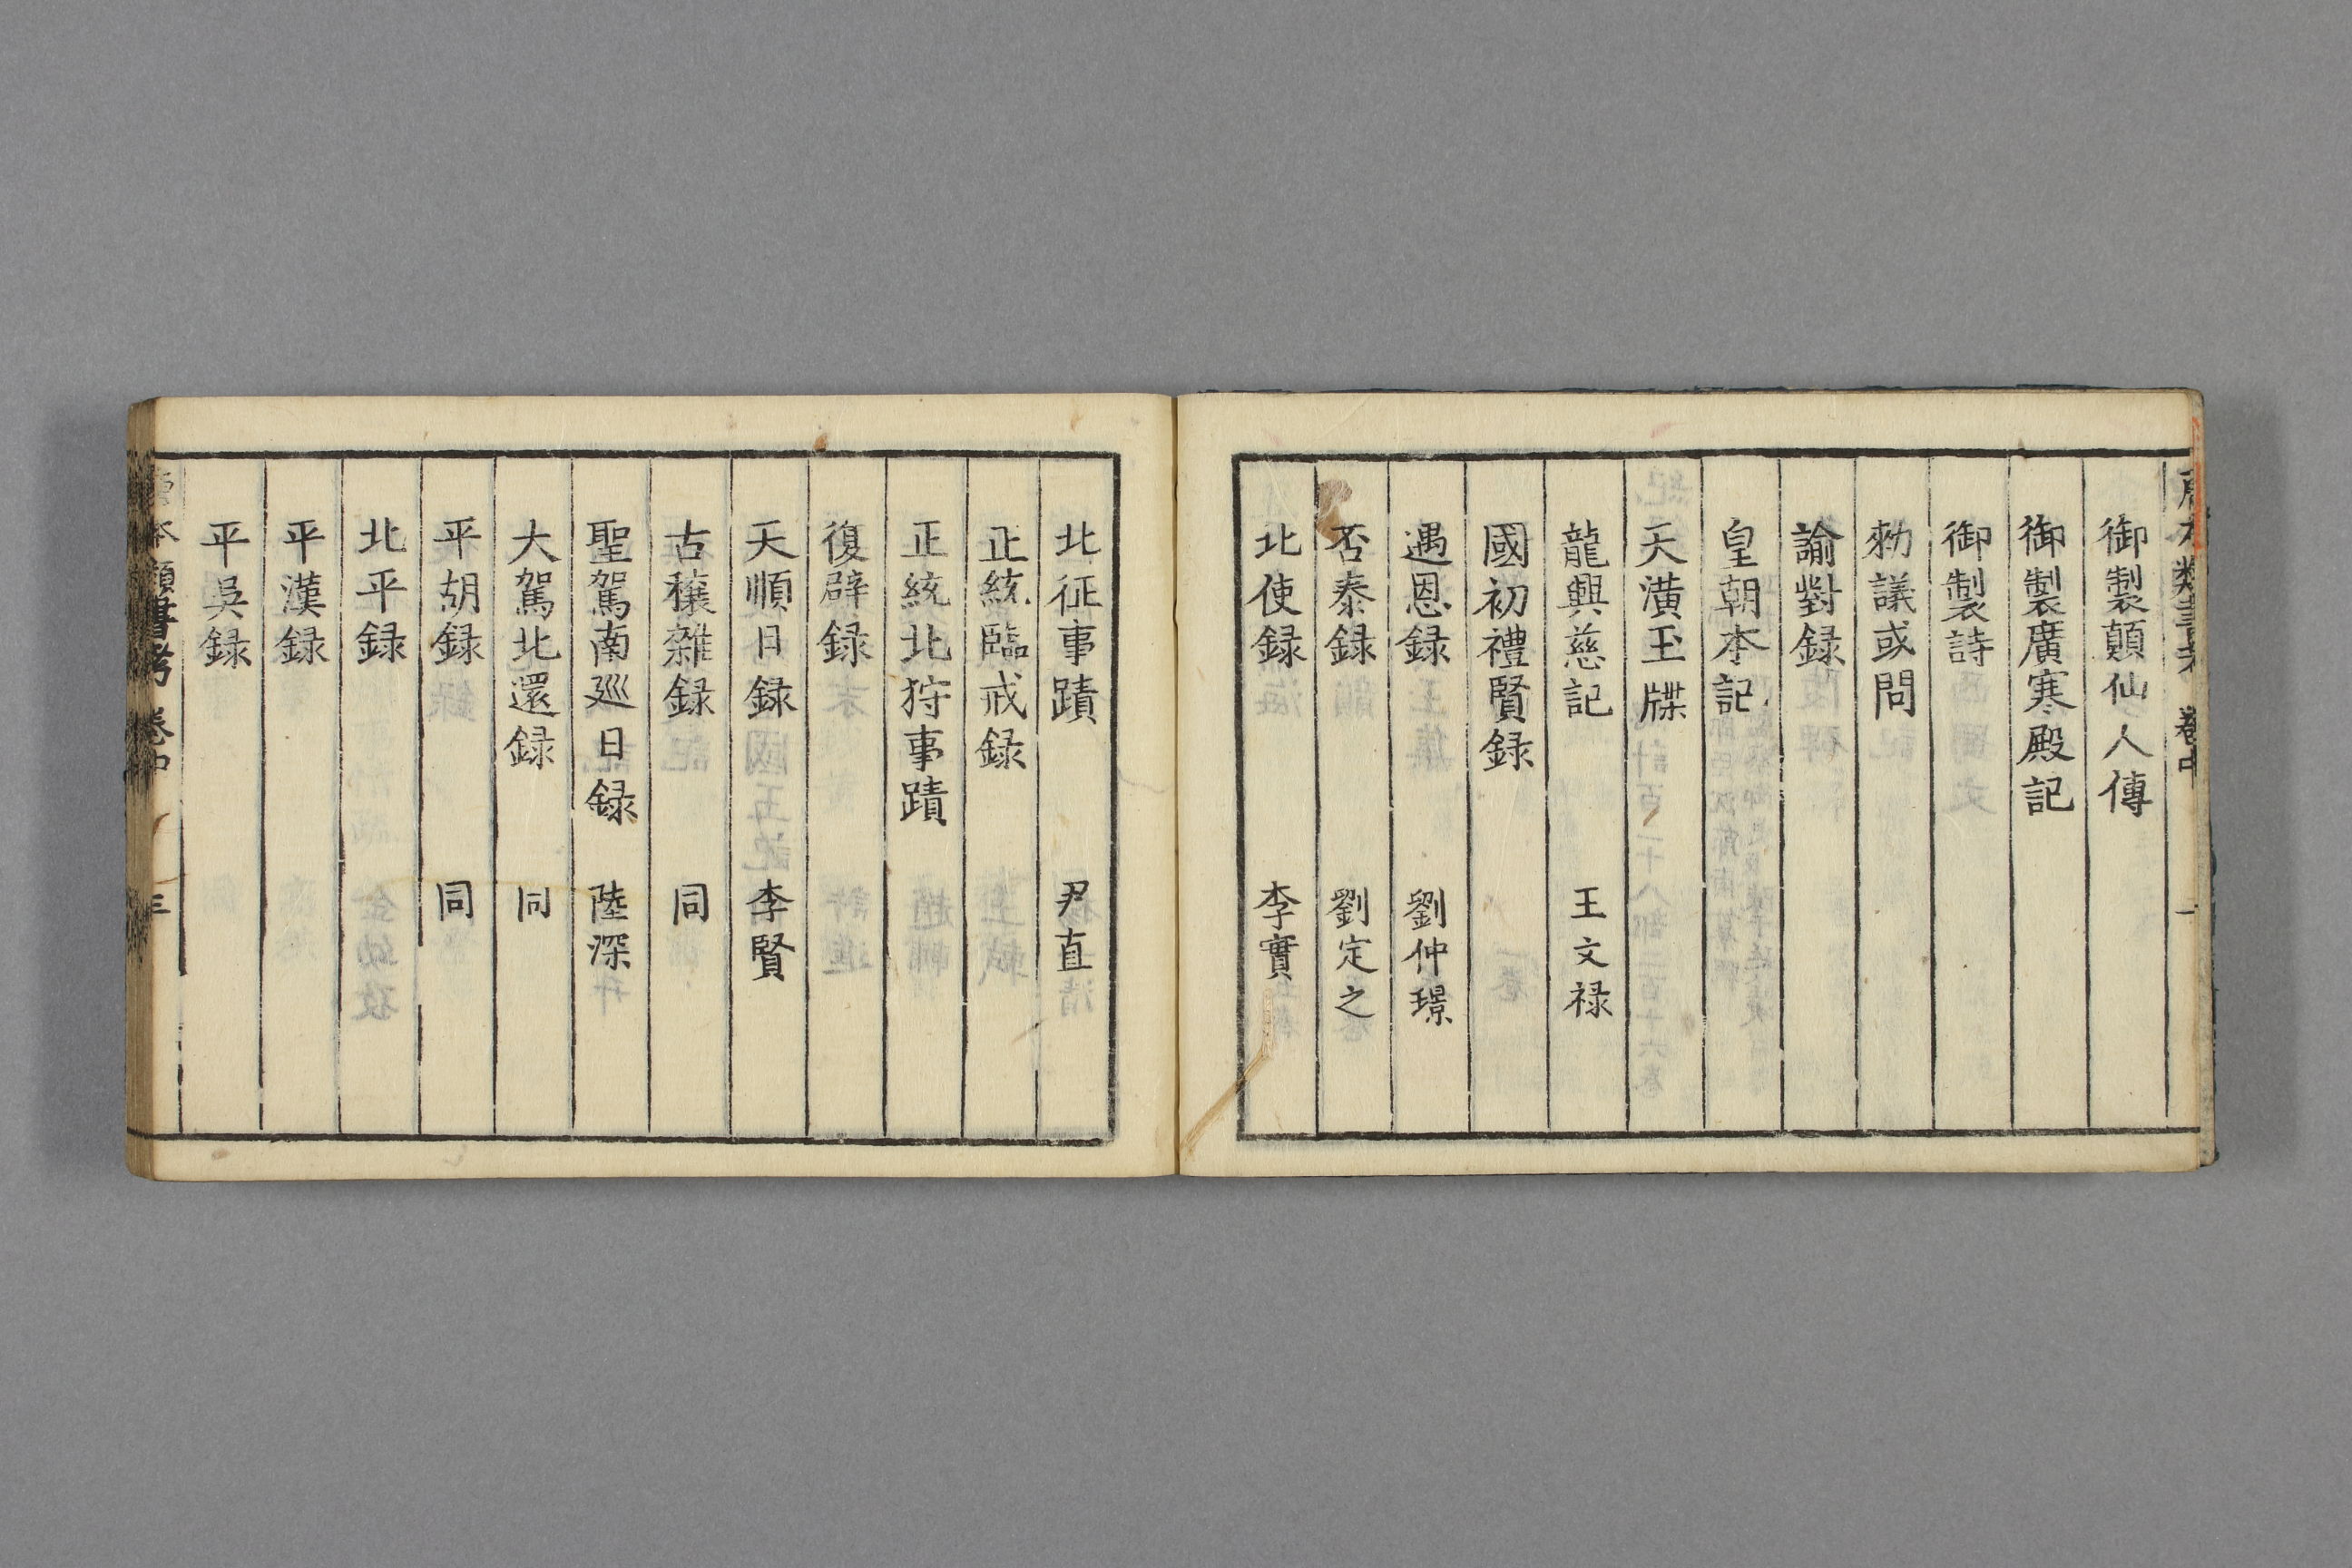 唐本類書考 卷中 一
御製顛仙人傳
御製廣寒殿記
御製詩
勑議或問
諭對録
皇朝本記
天潢玉牒
龍興慈記 王文禄
國初禮賢録
遇恩録 劉仲璟
否泰録 劉定之
北使録 李實
北征事蹟 尹直
正統臨戒録
正統北狩事蹟
復辟録
天順日録 李賢
古穰雜録 同
聖駕南巡日録 陸深
大駕北還録 同
平胡録 同
北平録
平漢録
平吳録
唐本類書考 卷中 三